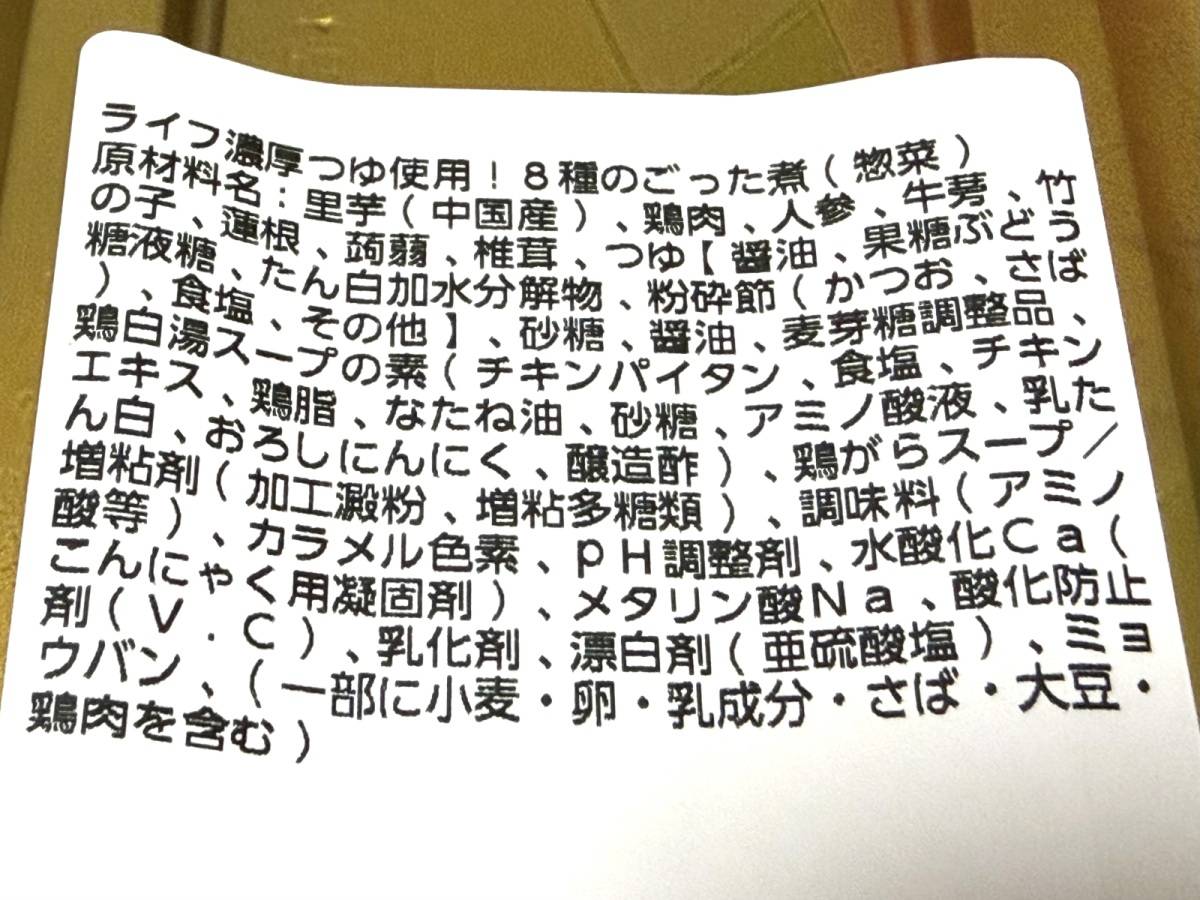 ライフ濃厚つゆ使用！８種のごった煮（惣菜）
原材料名：里芋（中国産）、鶏肉、人参、牛蒡、竹
の子、蓮根、蒟蒻、椎茸、つゆ【醤油、果糖ぶどう
糖液糖、たん白加水分解物、粉砕節（かつお、さば
）、食塩、その他】、砂糖、醤油、麦芽糖調整品、
鶏白湯スープの素（チキンパイタン、食塩、チキン
エキス、鶏脂、なたね油、砂糖、アミノ酸液、乳た
ん白、おろしにんにく、醸造酢）、鶏がらスープ／
増粘剤（加工澱粉、増粘多糖類）、調味料（アミノ
酸等）、カラメル色素、ｐＨ調整剤、水酸化Ｃａ（
こんにゃく用凝固剤）、メタリン酸Ｎａ、酸化防止
剤（Ｖ．Ｃ）、乳化剤、漂白剤（亜硫酸塩）、ミョ
ウバン、（一部に小麦・卵・乳成分・さば・大豆・
鶏肉を含む）